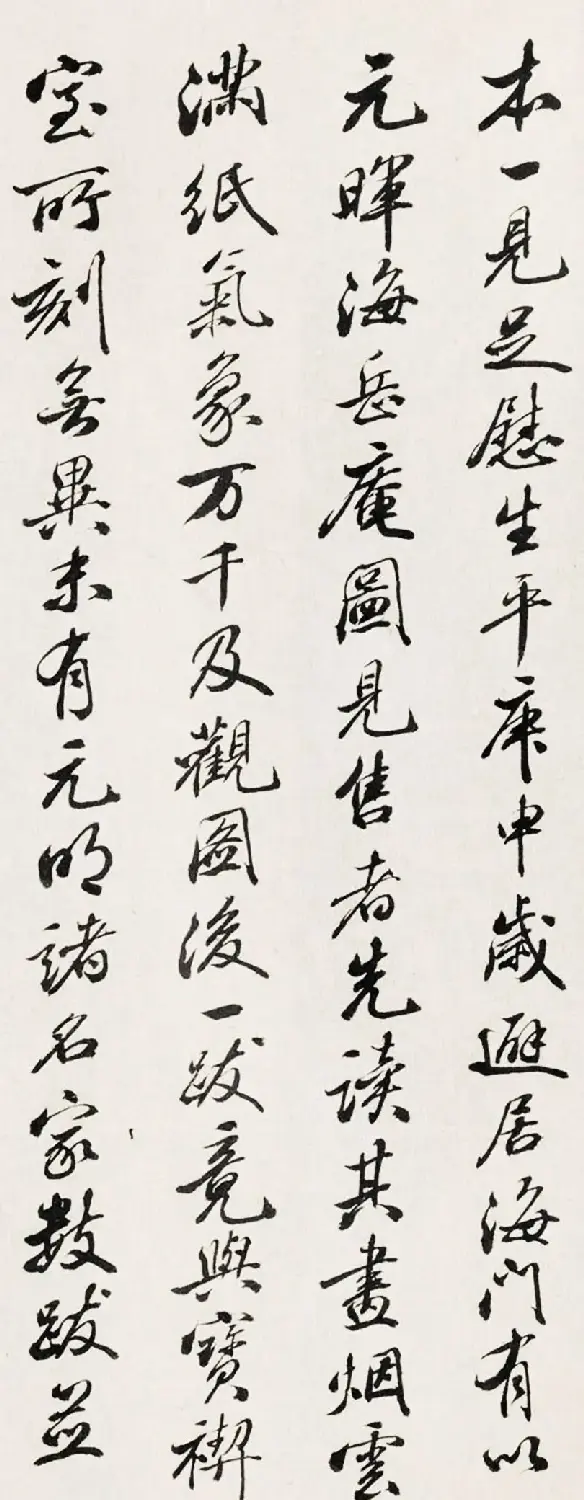 本一見足慰生平庚申歲避居海門有以
元暉海岳庵圖見售者先讀其畫烟雲
滿紙氣象万千及觀圖後一跋竟與寶禊
室所刻無異末有元明諸名家數跋並